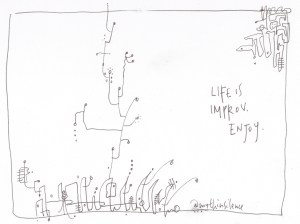 LIFE IS
IMPROV.
ENJOY.